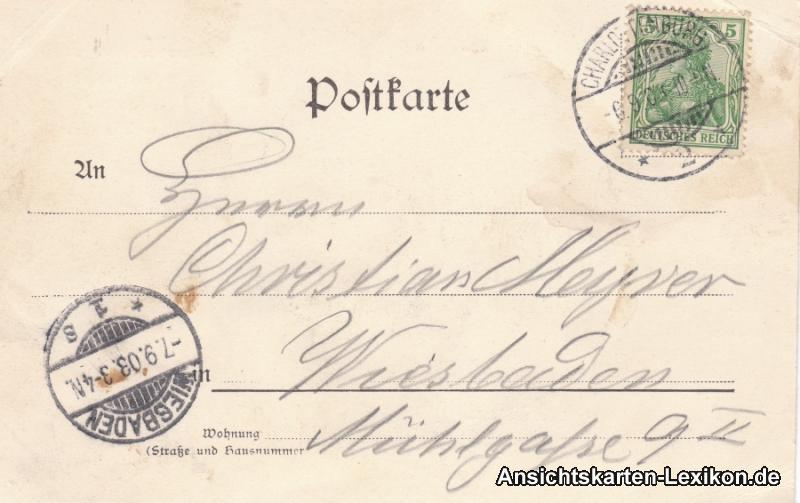 5 5
DEUTSCHES REICH
CHARLOTTENBURG
-6.9.03.
* 2
Postkarte
An
Herrn
Christian Meyrer
in Wiesbaden
Wohnung
(Straße und Hausnummer
Mühlgaße 9 II
* 1 S
-7.9.03.3-4N.
WIESBADEN
Ansichtskarten-Lexikon.de